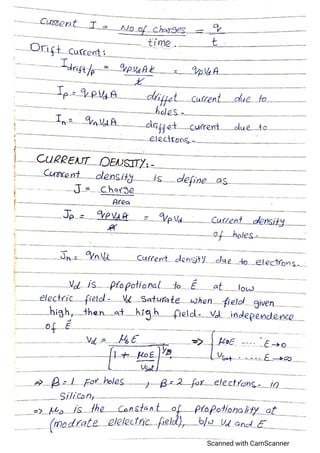 Current I = No of charges = q
time. t
Drift Current:
Idrift/p = qpVdAt = qpVdA
t
Ip = qpVdA driffet current due to
holes -
In = qnVdA driffet current due to
electrons -
CURRENT DENSITY:-
Current density is define as
J = Charge
Area
Jp = qpVdA = qpVd Current density
A of holes.
Jn = qnVd Current density due to electrons.
Vd is propotional to E at low
electric field. Vd Saturate when field given
high, then at high field. Vd independence
of E
Vd = μ0E => { μ0E .... E→0
[1 + μ0E/Vsat]^1/β Vsat ..... E→∞
=> β=1 For holes , β=2 for electrons. in
Silicon,
=> μ0 is the Constant of propotionality at
(modrate elelectric field), b/w Vd and E
Scanned with CamScanner